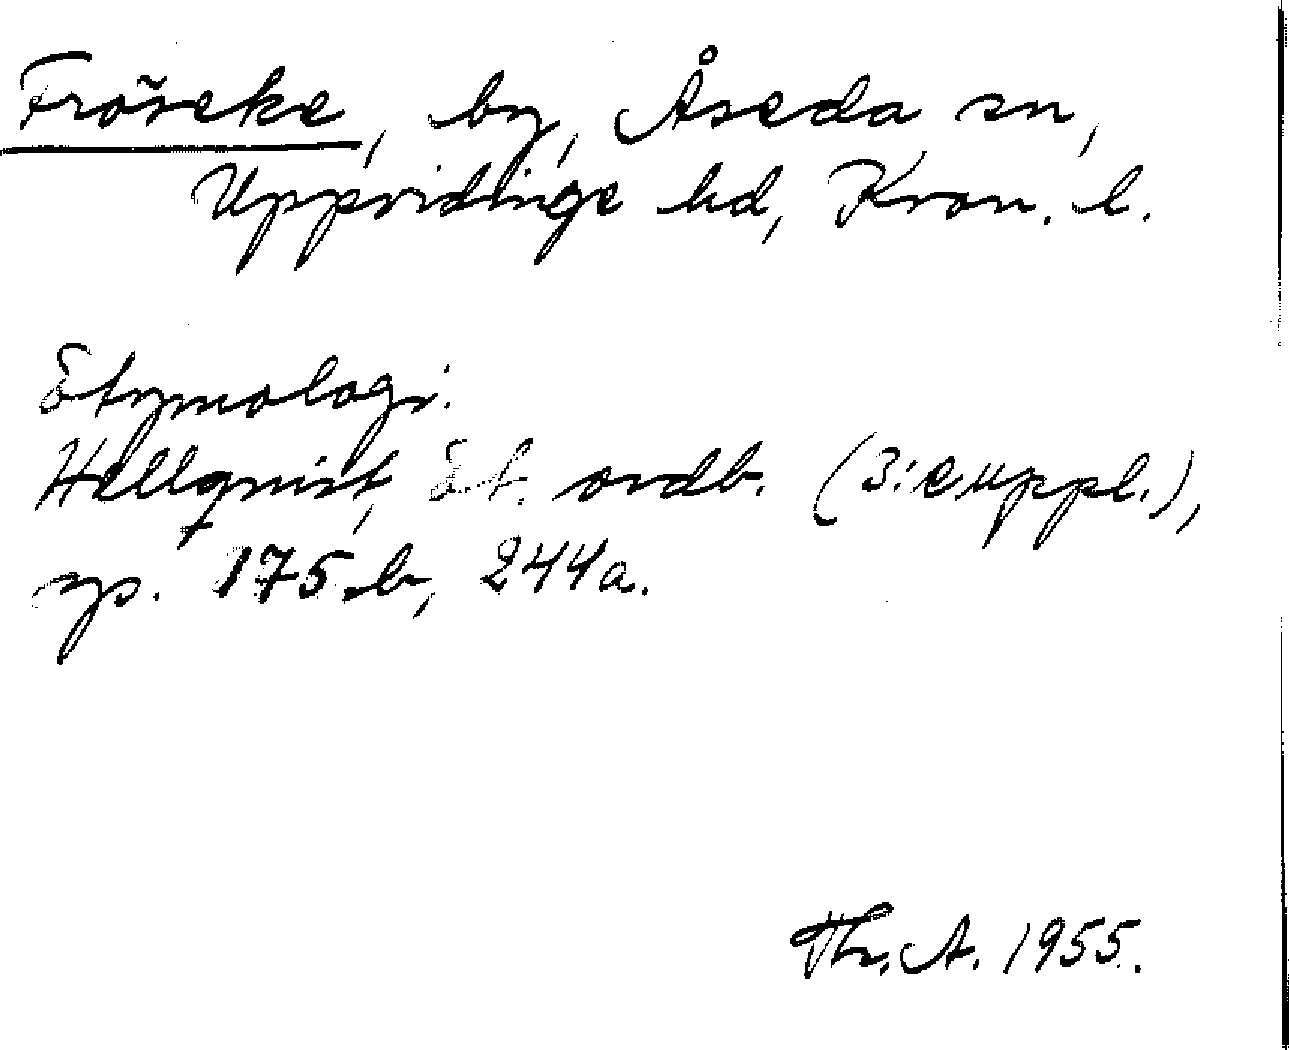 Fröseke, by, Åseda sn,
Uppvidinge hd, Kron. l.
Etymologi.
Hellquist, Et. ordb. (3:e uppl.),
sp. 175 b, 244 a.
Th. A. 1955.